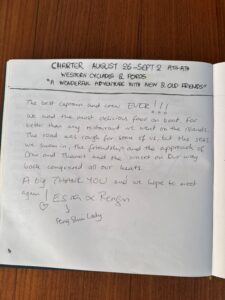 CHARTER AUGUST 26-SEPT 2 ATH-ATH
WESTERN CYCLADES & POROS
"A WONDERFUL ADVENTURE WITH NEW & OLD FRIENDS"
The best captain and crew EVER!!!
We had the most delicious food on boat, far
better than any restaurant we went on the islands.
The road was rough for some of us but the seas
we swam in, the friendship and the approach of
and Thanos and the sunset on our way
back conquered all our hearts.
A big THANK YOU and we hope to meet
again!
Feng Shui Lady